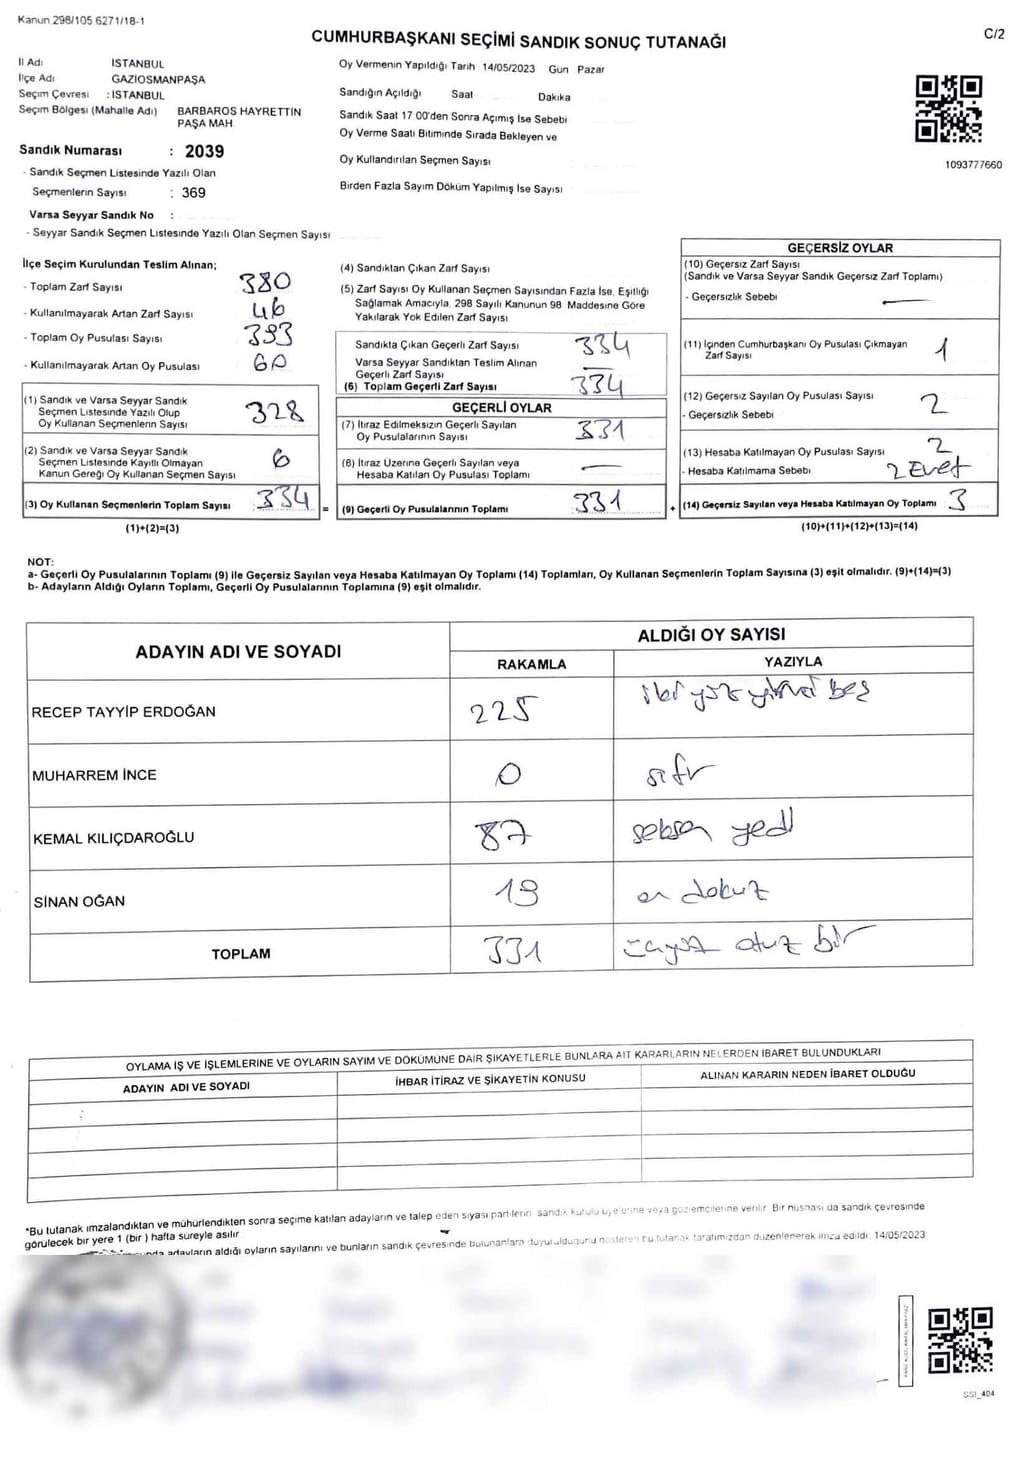 Kanun 298/105 6271/18-1
C/2
CUMHURBAŞKANI SEÇİMİ SANDIK SONUÇ TUTANAĞI
İl Adı İSTANBUL
İlçe Adı GAZİOSMANPAŞA
Seçim Çevresi : İSTANBUL
Seçim Bölgesi (Mahalle Adı) BARBAROS HAYRETTİN PAŞA MAH
Sandık Numarası : 2039
- Sandık Seçmen Listesinde Yazılı Olan
Seçmenlerin Sayısı : 369
Varsa Seyyar Sandık No :
- Seyyar Sandık Seçmen Listesinde Yazılı Olan Seçmen Sayısı
Oy Vermenin Yapıldığı Tarih 14/05/2023 Gün Pazar
Sandığın Açıldığı Saat Dakika
Sandık Saat 17 00'den Sonra Açımış İse Sebebi
Oy Verme Saati Bitiminde Sırada Bekleyen ve
Oy Kullandırılan Seçmen Sayısı
Birden Fazla Sayım Döküm Yapılmış İse Sayısı
1093777660
İlçe Seçim Kurulundan Teslim Alınan;
- Toplam Zarf Sayısı 380
- Kullanılmayarak Artan Zarf Sayısı 46
- Toplam Oy Pusulası Sayısı 393
- Kullanılmayarak Artan Oy Pusulası 60
(1) Sandık ve Varsa Seyyar Sandık
Seçmen Listesinde Yazılı Olup
Oy Kullanan Seçmenlerin Sayısı 328
(2) Sandık ve Varsa Seyyar Sandık
Seçmen Listesinde Kayıtlı Olmayan
Kanun Gereği Oy Kullanan Seçmen Sayısı 6
(3) Oy Kullanan Seçmenlerin Toplam Sayısı 334 =
(1)+(2)=(3)
(4) Sandıktan Çıkan Zarf Sayısı
(5) Zarf Sayısı Oy Kullanan Seçmen Sayısından Fazla İse, Eşitliği
Sağlamak Amacıyla, 298 Sayılı Kanunun 98 Maddesine Göre
Yakılarak Yok Edilen Zarf Sayısı
Sandıkta Çıkan Geçerli Zarf Sayısı 334
Varsa Seyyar Sandıktan Teslim Alınan
Geçerli Zarf Sayısı —
(6) Toplam Geçerli Zarf Sayısı 334
GEÇERLİ OYLAR
(7) İtiraz Edilmeksizin Geçerli Sayılan
Oy Pusulalarının Sayısı 331
(8) İtiraz Üzerine Geçerli Sayılan veya
Hesaba Katılan Oy Pusulası Toplamı —
(9) Geçerli Oy Pusulalarının Toplamı 331 +
GEÇERSİZ OYLAR
(10) Geçersiz Zarf Sayısı
(Sandık ve Varsa Seyyar Sandık Geçersiz Zarf Toplamı)
- Geçersizlik Sebebi —
(11) İçinden Cumhurbaşkanı Oy Pusulası Çıkmayan
Zarf Sayısı 1
(12) Geçersiz Sayılan Oy Pusulası Sayısı 2
- Geçersizlik Sebebi
(13) Hesaba Katılmayan Oy Pusulası Sayısı 2
- Hesaba Katılmama Sebebi 2 Evet
(14) Geçersiz Sayılan veya Hesaba Katılmayan Oy Toplamı 3
(10)+(11)+(12)+(13)=(14)
NOT:
a- Geçerli Oy Pusulalarının Toplamı (9) ile Geçersiz Sayılan veya Hesaba Katılmayan Oy Toplamı (14) Toplamları, Oy Kullanan Seçmenlerin Toplam Sayısına (3) eşit olmalıdır. (9)+(14)=(3)
b- Adayların Aldığı Oyların Toplamı, Geçerli Oy Pusulalarının Toplamına (9) eşit olmalıdır.
ADAYIN ADI VE SOYADI ALDIĞI OY SAYISI
RAKAMLA YAZIYLA
RECEP TAYYİP ERDOĞAN 225 iki yüz yirmi beş
MUHARREM İNCE 0 sıfır
KEMAL KILIÇDAROĞLU 87 seksen yedi
SİNAN OĞAN 19 on dokuz
TOPLAM 331 üçyüz otuz bir
OYLAMA İŞ VE İŞLEMLERİNE VE OYLARIN SAYIM VE DÖKÜMÜNE DAİR ŞİKAYETLERLE BUNLARA AİT KARARLARIN NELERDEN İBARET BULUNDUKLARI
ADAYIN ADI VE SOYADI İHBAR İTİRAZ VE ŞİKAYETİN KONUSU ALINAN KARARIN NEDEN İBARET OLDUĞU
*Bu tutanak imzalandıktan ve mühürlendikten sonra seçime katılan adayların ve talep eden siyasi partilerin sandık kurulu üyelerine veya gözlemcilerine verilir Bir nüshası da sandık çevresinde
görülecek bir yere 1 (bir ) hafta süreyle asılır
adayların aldığı oyların sayılarını ve bunların sandık çevresinde bulunanlara duyurulduğunu gösteren bu tutanak tarafımızdan düzenlenerek imza edildi 14/05/2023
SSI_404